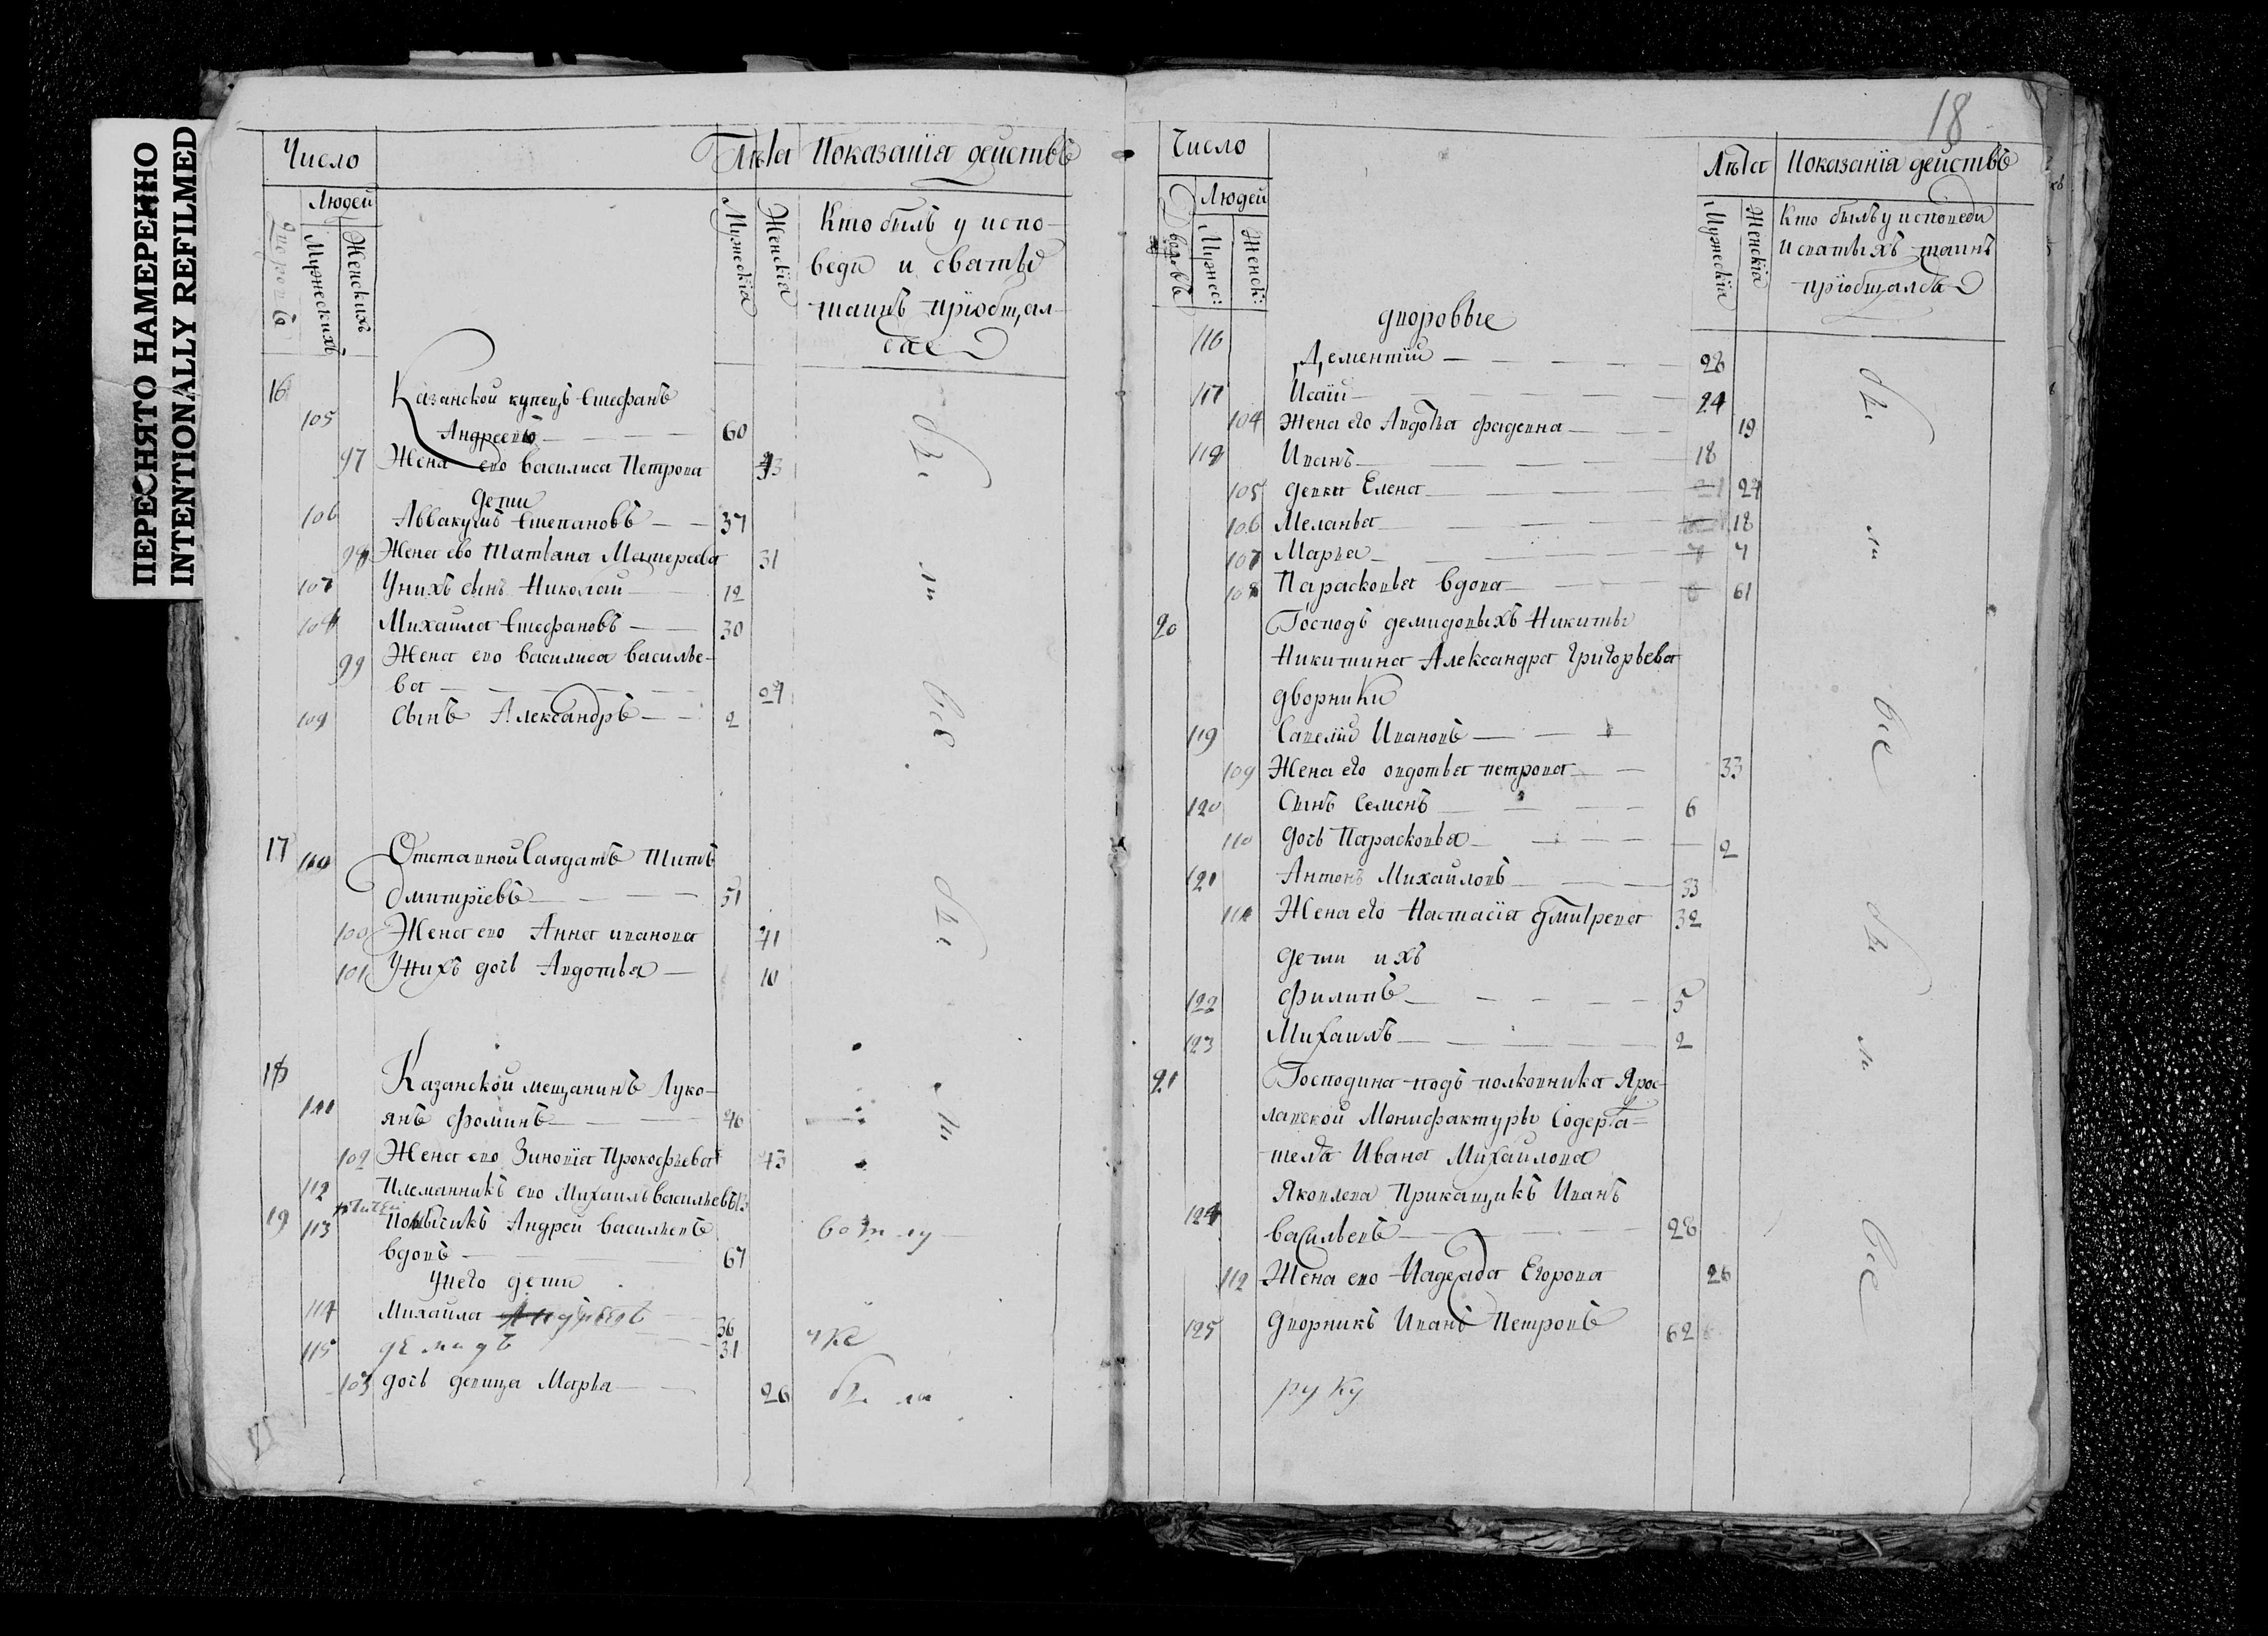 ПЕРЕСНЯТО НАМЕРЕННО
INTENTIONALLY REFILMED
Число
Лѣта
Показанїя действъ
Людей
Дворовъ
Мужескихъ
Женскихъ
Мужескїя
Женскїя
Кто былъ у испо-
веди и святы
таинъ прїобщал-
ся
16
Казанской купецъ Стефанъ
105 Андреевъ 60
97 Жена ево Василиса Петрова
дети
106 Аввакумъ Степановъ 37
Жена ево Татьяна 31
107 Унихъ сынъ Николай 12
Михайла Стефановъ 30
99 Жена ево Василиса Василье-
ва 27
109 Сынъ Александръ 2
были все
17 110 Отставной Салдатъ Титъ
Дмитрїевъ 51
100 Жена ево Анна иванова 41
101 Унихъ дочь Авдотья 10
18
Казанской мещанинъ Луко-
111 янъ Фоминъ
102 Жена ево Зиновїя Прокофьева 43
112 Племянникъ ево Михаилъ Васильевъ
были
19 113 Андрей Васильевъ
вдовъ 67
Унего дети
114 Михайла Андреевъ 36
115 демидъ 31
103 дочь девица Марья 26 была
18
Число
Лѣта
Показанїя действъ
Людей
Дворовъ
Мужес:
Женск:
Мужескїя
Женскїя
Кто былъ у исповеди
и святыхъ таинъ
прїобщался
дворовые
116 Дементїй 28
117 Исаїй 24
104 Жена его Авдотья Фадеевна 19
118 Иванъ 18
105 девка Елена 24
106 Меланья 18
107 Марья 7
108 Парасковья вдова 61
20 Господъ демидовыхъ Никиты
Никитина Александра Григорьева
дворники
119 Савелїй Ивановъ
109 Жена его овдотья петрова 33
120 Сынъ Семенъ 6
110 дочь Парасковья 2
121 Антонъ Михайловъ 33
111 Жена его Настасїя дмитрева 32
дети ихъ
122 Филипъ 5
123 Михаилъ 2
были все
21 Господина подъ полковника Ярос-
лавской Манифактуры Содержа=
теля Ивана Михайлова
Яковлева Прикащикъ Иванъ
124 Васильевъ 28
112 Жена ево Надежда Егорова 26
125 дворникъ Иванъ Петровъ 62
были все
руку